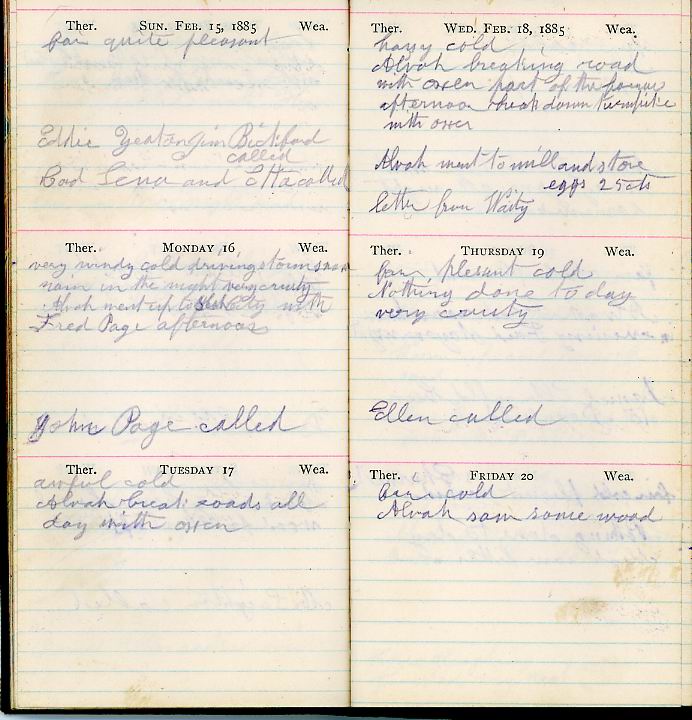 Ther. SUN. FEB. 15, 1885 Wea.
fair quite pleasant
Eddie Yeaton Jim Bickford
called
Lena and Etta called
Ther. MONDAY 16 Wea.
very windy cold driving storm snow
rain in the night very crusty
Alvah went up to City with
Fred Page afternoon
John Page called
Ther. TUESDAY 17 Wea.
awful cold
Alvah break roads all
day with oxen
Ther. WED. FEB. 18, 1885 Wea.
hazy cold
Alvah breaking road
with oxen part of the
afternoon break down turnpike
with oxen
Alvah went to mill and store
eggs 25cts
letter from Waity
Ther. THURSDAY 19 Wea.
fair plesant cold
Nothing done to day
very crusty
Ellen called
Ther. FRIDAY 20 Wea.
fair cold
Alvah sam some wood